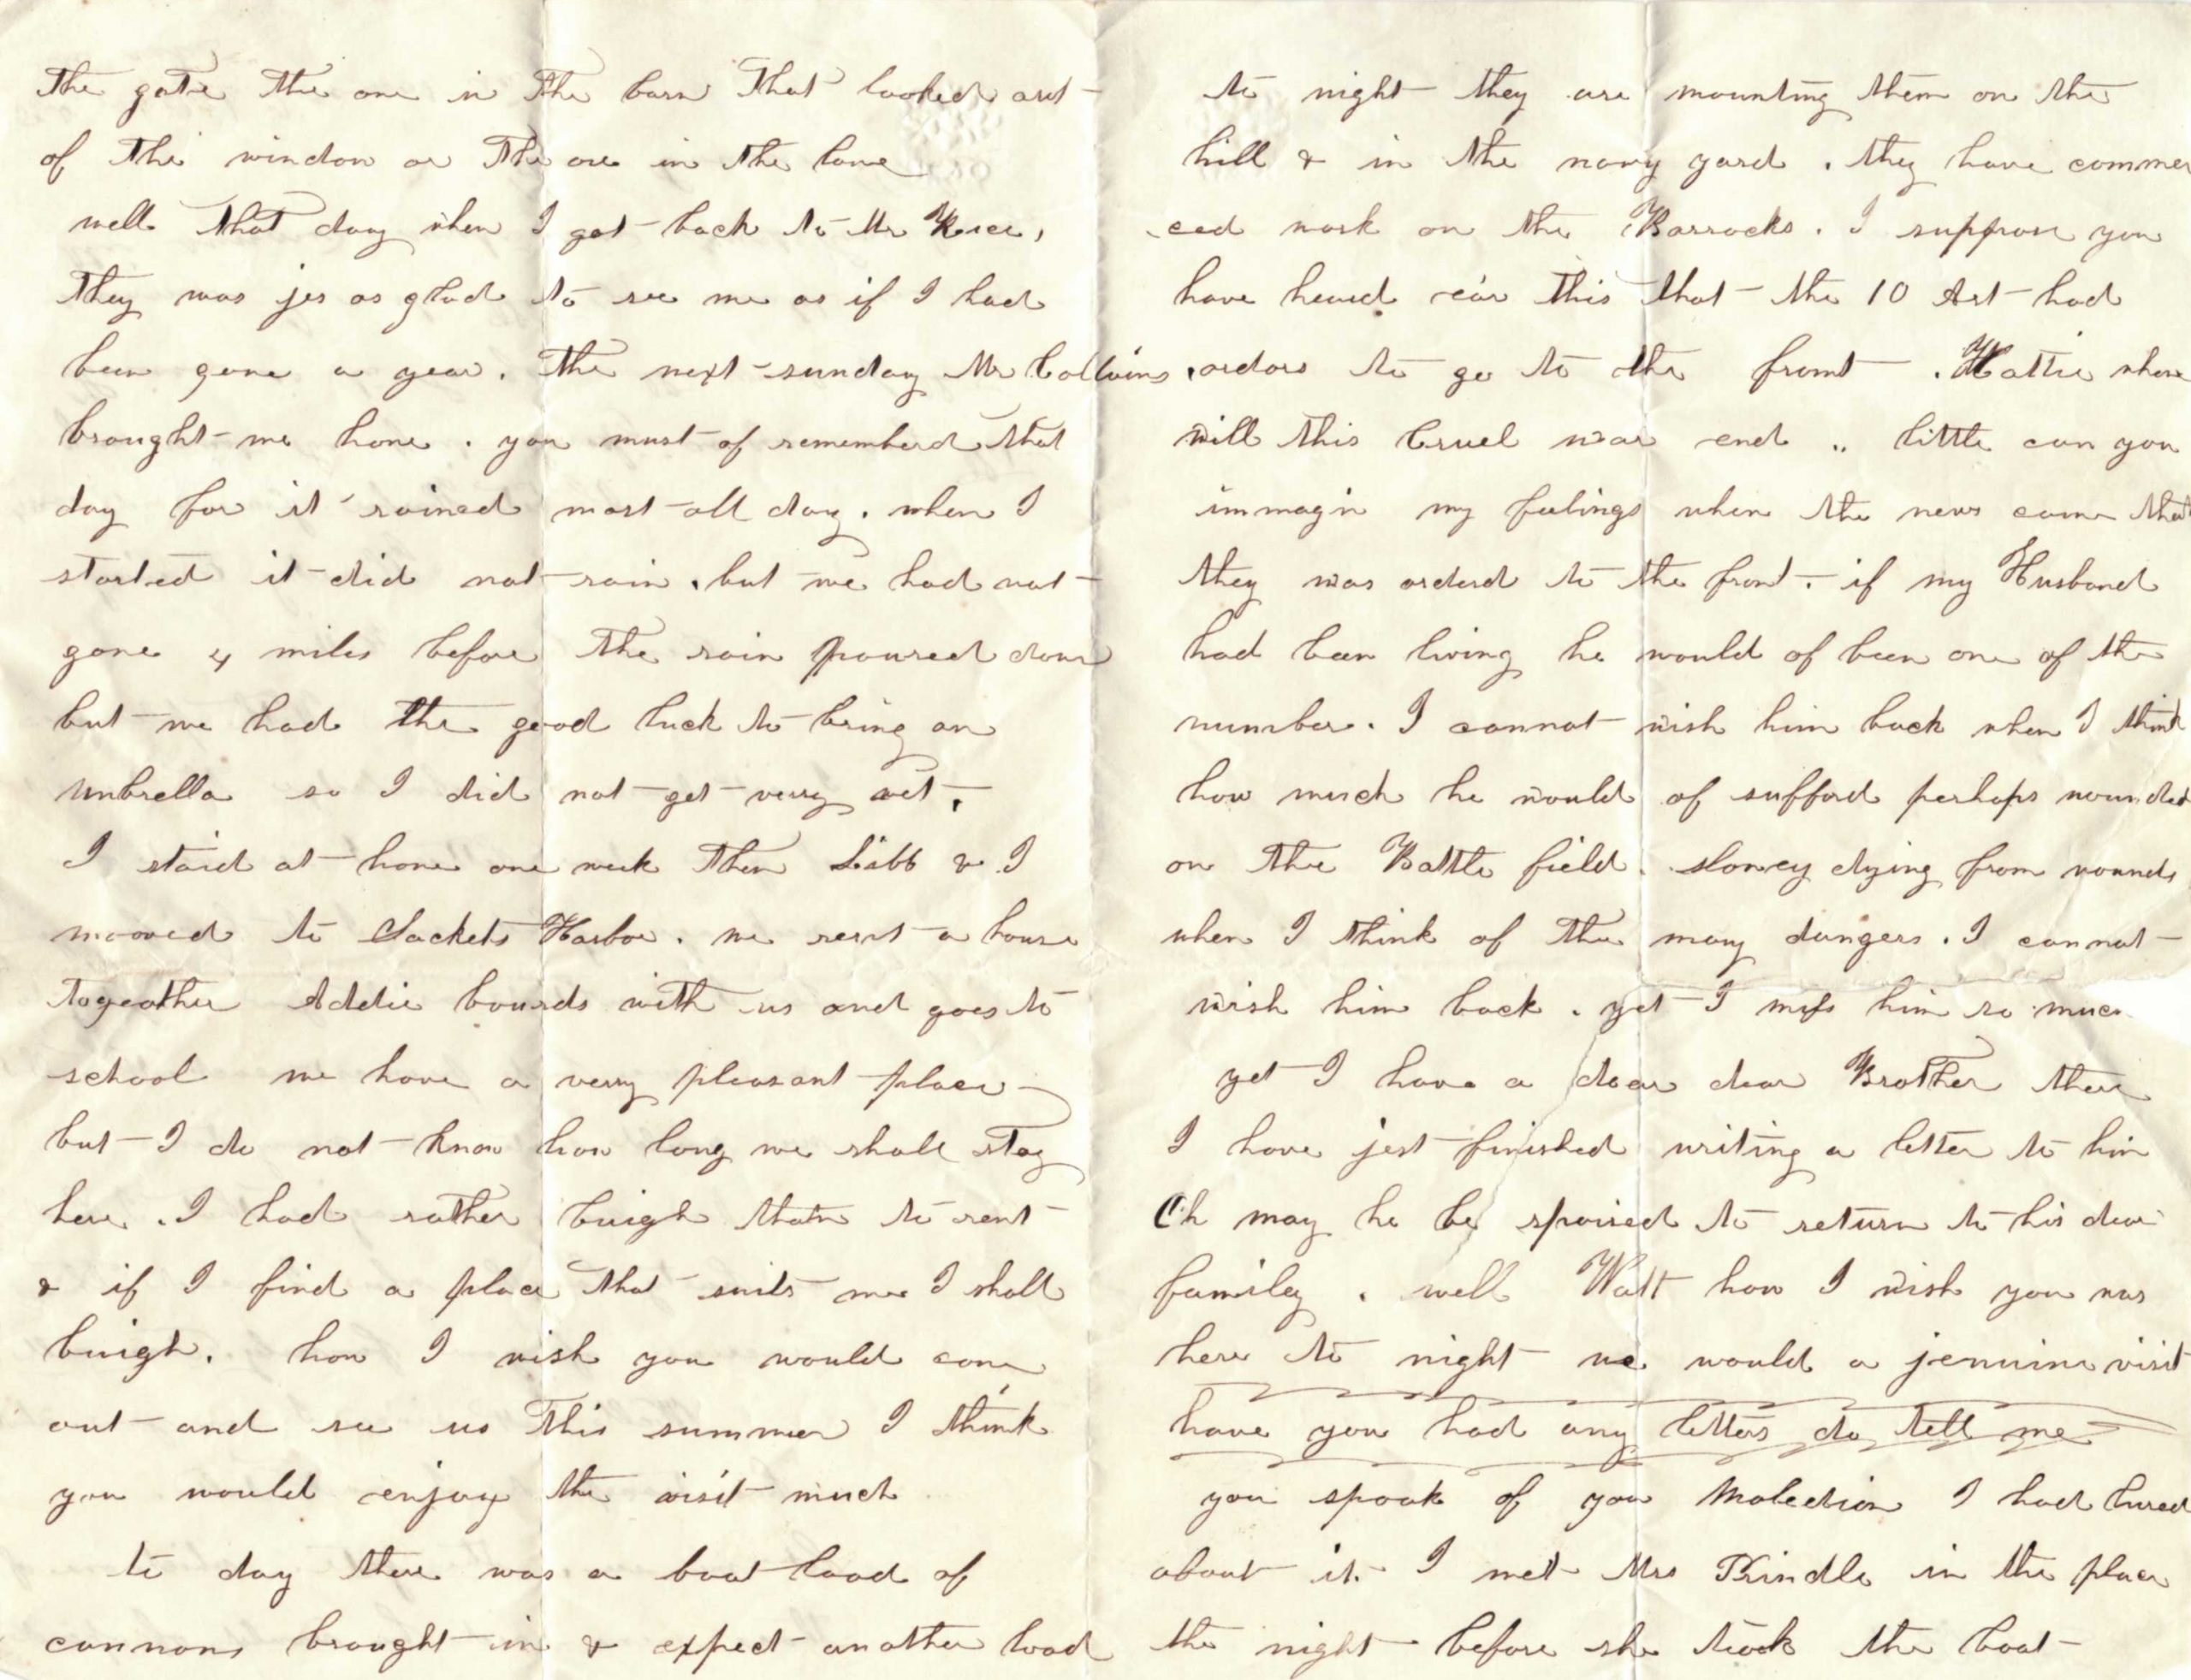 the gate the one in the barn that looked out
of the window or the one in the lane
well that day when I got back to Mr Rices,
they was jes as glad to see me as if I had
been gone a year. the next sunday Mr Collins
brought me home. you must of rememberd that
day for it rained most all day. when I
started it did not rain. but we had not
gone 4 miles before the rain poured down
but we had the good luck to bring an
umbrella so I did not get verry wet.
I staid at home one week then Libb & I
mooved to Sackets Harbor. we rent a house
togeather Addie bourds with us and goes to
school we have a verry pleasant place
but I do not know how long we shall stay
here. I had rather buigh than to rent
& if I find a place that suits me I shall
buigh. how I wish you would come
out and see us this summer I think
you would enjoy the visit much
to day there was a boat load of
cannons brought in & expect another load
to night they are mounting them on the
hill & in the navy yard. they have commen
ced work on the Barracks. I suppose you
have heard e'ar this that the 10 Art had
orders to go to the front. Hattie when
will this Cruel war end .. little can you
immagin my feelings when the news came that
they was orderd to the front. if my Husband
had been living he would of been one of the
number. I cannot wish him back when I think
how much he would of sufferd perhaps wounded
on the Battle field. slowey dying from wounds
when I think of the many dangers. I cannot
wish him back. yet I miss him so much
yet I have a dear dear Brother there
I have jest finished writing a letter to him
Oh may he be spaired to return to his dear
family. well Watt how I wish you was
here to night we would a jenuine visit
have you had any letters do tell me
you spoak of you Maledion I had hured
about it. I met Mrs Prindle in the place
the night before she toock the boat